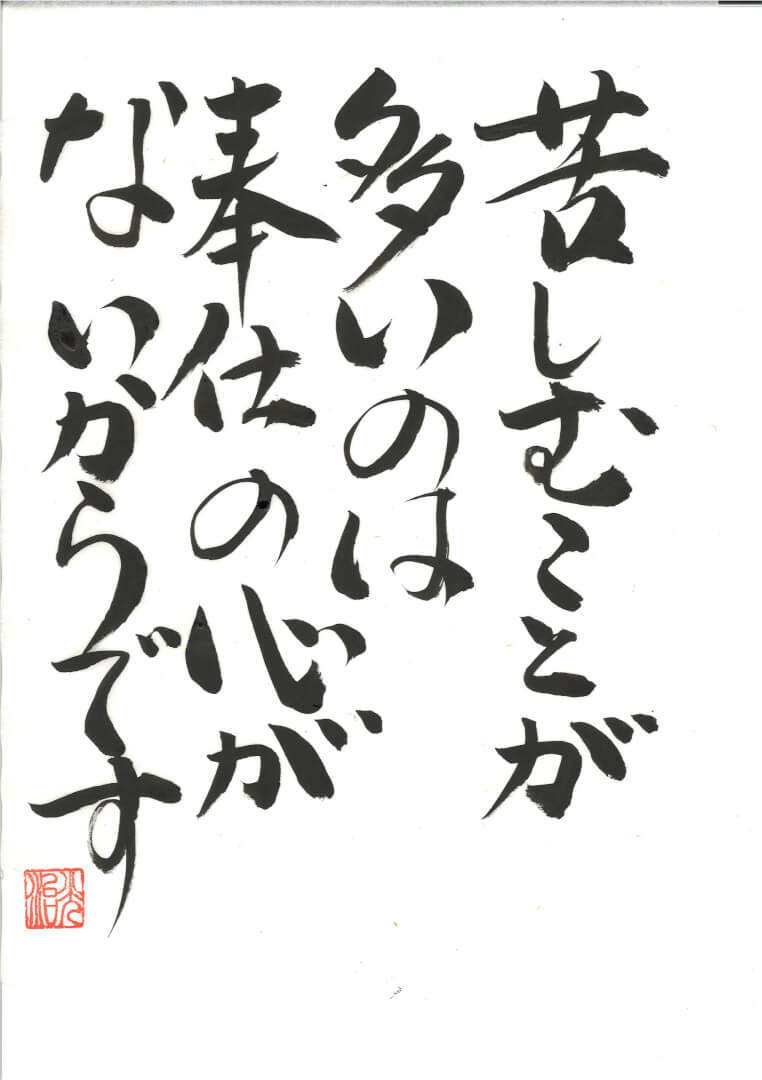 苦しむことが
多いのは
奉仕の心が
ないからです